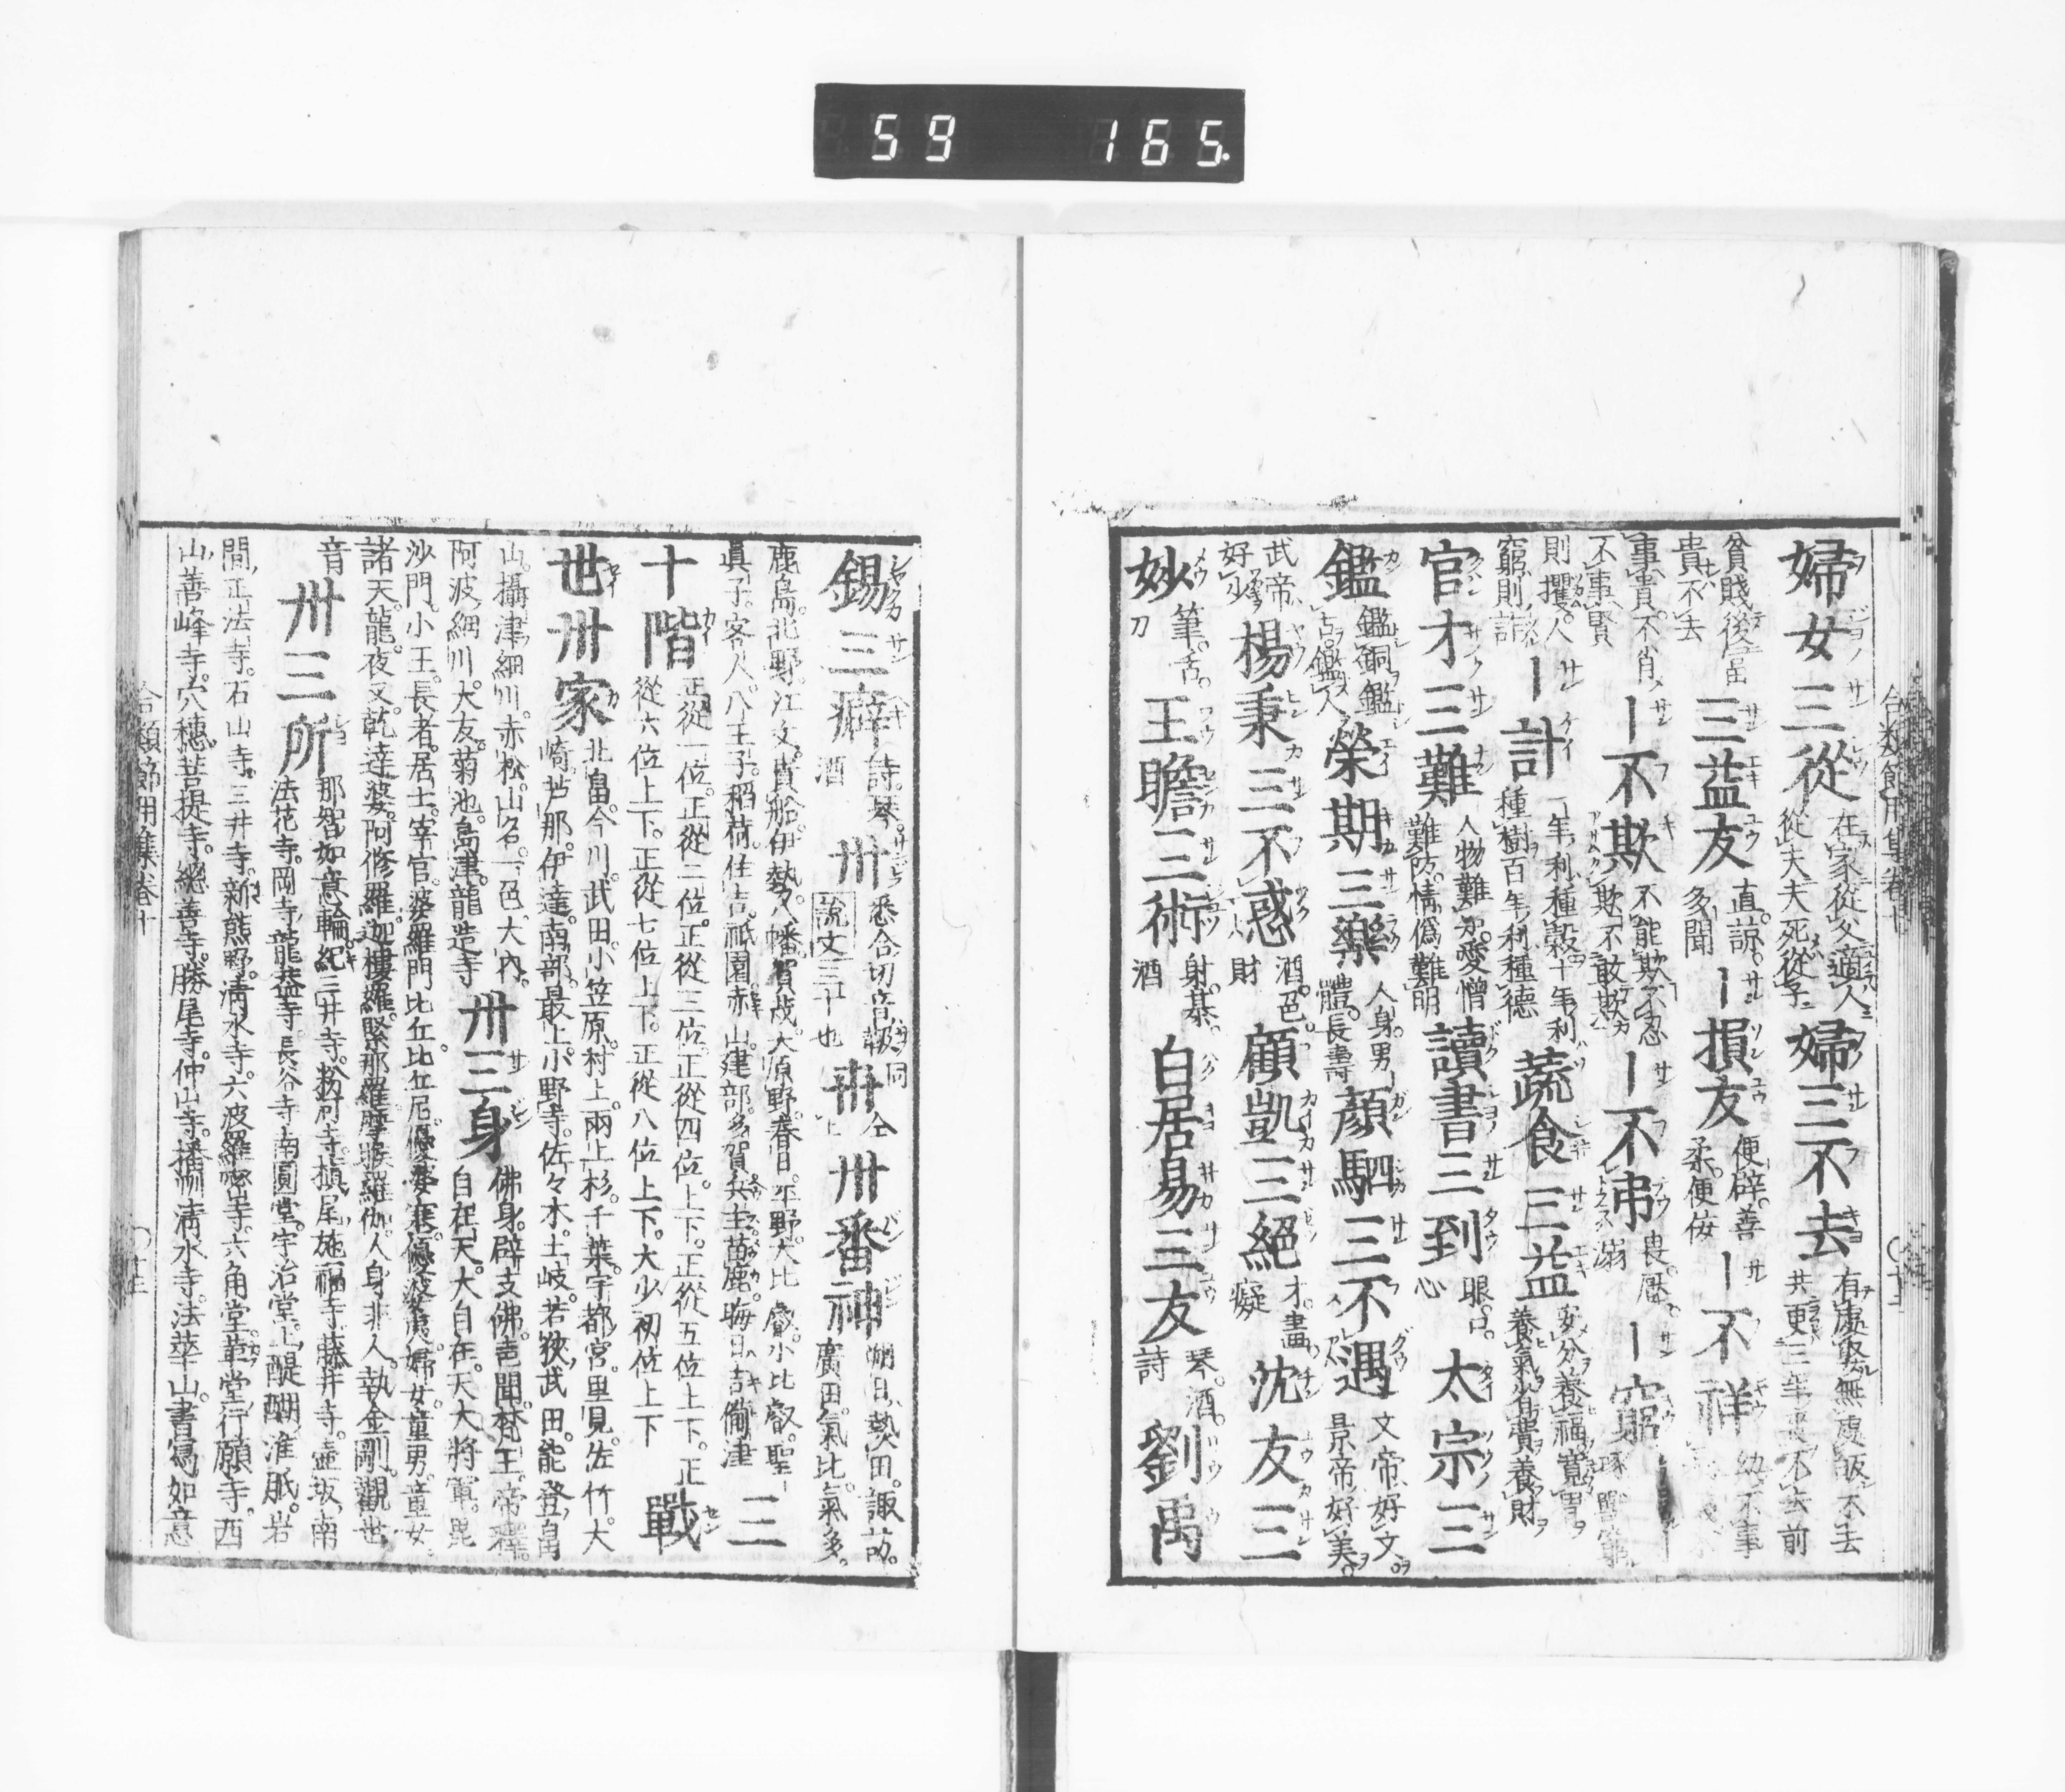 59 165
婦女三從 在家從父適人
從夫夫死從子 婦三不去 有處娶無處皈不去
共更三年喪不去前
貧賤後冨
貴不去 三益友 直諒
多聞 ー損友 便辟善
柔便佞 ー不祥 幼不事
事貴不肖
不事賢 ー不欺 不能欺不忍
欺不敢欺 ー不弔 畏厭
溺 ー窮
則攫人
窮則詐 ー計 一年利種穀十年利
種樹百年利種德 蔬食三益 安分養福寬胃
養氣省費養財
官才三難 人物難知愛憎
難防情僞難明 讀書三到 眼口
心 太宗三
鑑 鑑銅鑑
古鑑人 榮期三樂 人身男ー
體長壽 顏駟三不遇 文帝好文
景帝好美
武帝
好少 楊秉三不惑 酒色
財 顧凱三絕 才畫
癡 沈友三
妙 筆舌
刀 王瞻三術 射棊
酒 白居易三友 琴酒
詩 劉禹
錫三癖 詩琴
酒 卅 悉合切音趿
說文三十也 卅 仝上 卅番神 熱田諏訪
廣田氣比氣多
鹿島北野江文貴船伊勢八幡賀茂大原野春日平野大比叡小比叡聖ー
眞子客人八王子稻荷住吉祇園赤山建部多賀兵主苗鹿 三
十階 正從一位正從二位正從三位正從四位上下正從五位上下正
從六位上下正從七位上下正從八位上下大少初位上下 戰
世卅家 北畠今川武田小笠原村上兩上杉千葉宇都宮里見佐竹大
崎芦那伊達南部最上小野寺佐々木土岐若狹武田能登畠
山攝津細川赤松山名一色大內
阿波細川大友菊池島津龍造寺 卅三身 佛身辟支佛聲聞梵王帝釋
自在天大自在天大將軍毘
沙門小王長者居士宰官婆羅門比丘比丘尼優婆塞優婆夷婦女童男童女
諸天龍夜叉乾達婆阿修羅迦樓羅緊那羅摩睺羅伽人身非人執金剛觀世
音 卅三所 那智如意輪紀三井寺粉河寺槇尾施福寺藤井寺壷坂南
法花寺岡寺龍蓋寺長谷寺南圓堂宇治堂上醍醐准胝岩
間正法寺石山寺三井寺新熊野淸水寺六波羅寺六角堂革堂行願寺西
山善峰寺穴穗菩提寺總善寺勝尾寺仲山寺播州淸水寺法華山書寫如意
合類節用集卷十